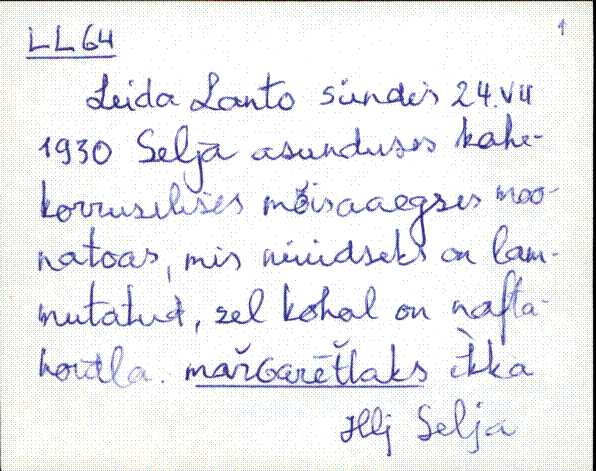 1
LL64
Leida Lanto sündis 24.VII
1930 Selja asunduses kahe-
korruselises mõisaaegses moo-
natoas, mis nüüdseks on lam-
mutatud, sel kohal on nafta-
hoidla. ikka
Hlj Selja